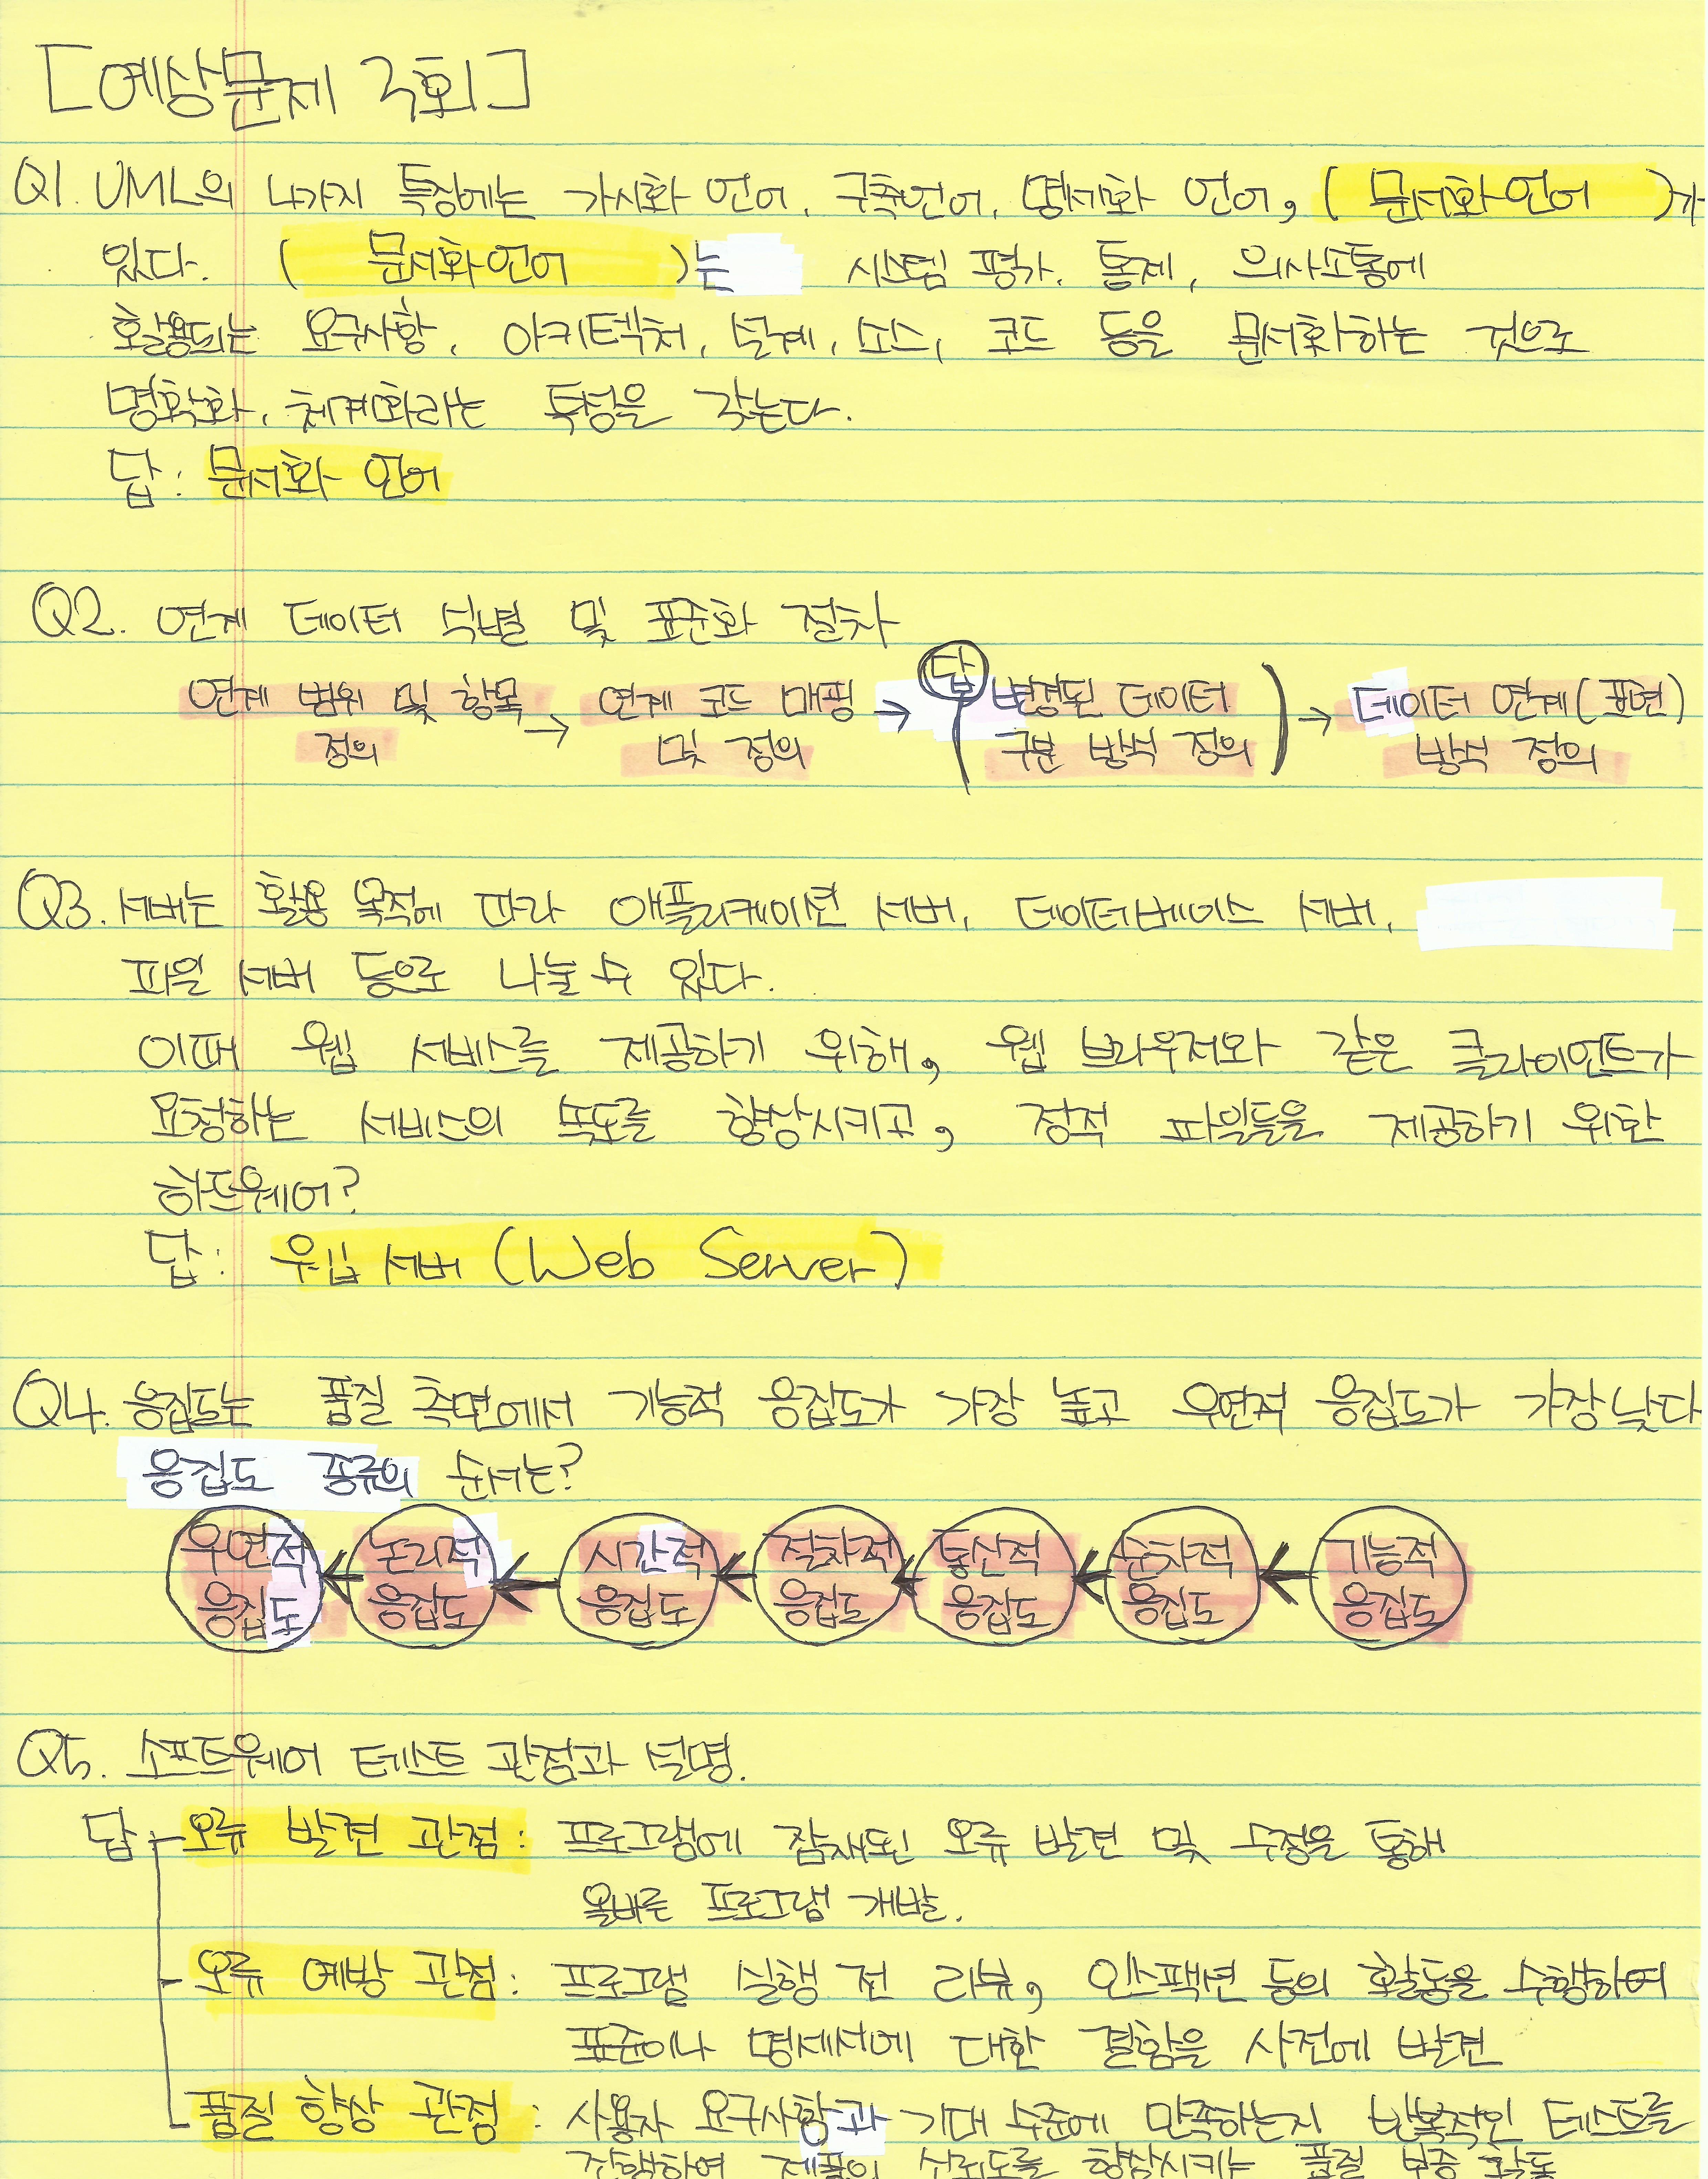 [예상문제 2회]
Q1. UML의 4가지 특징에는 가시화 언어, 구축언어, 명세화 언어, ( 문서화 언어 )가
있다. ( 문서화 언어 )는 시스템 평가, 통제, 의사소통에
활용되는 요구사항, 아키텍처, 설계, 소스, 코드 등을 문서화하는 것으로
명확화, 체계화라는 특성을 갖는다.
답: 문서화 언어
Q2. 연계 데이터 식별 및 표준화 절차
연계 범위 및 항목 → 연계 코드 매핑 → 답 ( 변경된 데이터 ) → 데이터 연계(표현)
정의 및 정의 구분 방식 정의 방식 정의
Q3. 서버는 활용 목적에 따라 애플리케이션 서버, 데이터베이스 서버,
파일 서버 등으로 나눌 수 있다.
이때 웹 서비스를 제공하기 위해, 웹 브라우저와 같은 클라이언트가
요청하는 서비스의 속도를 향상시키고, 정적 파일들을 제공하기 위한
하드웨어?
답: 웹 서버 (Web Server)
Q4. 응집도는 품질 측면에서 기능적 응집도가 가장 높고 우연적 응집도가 가장 낮다
응집도 종류의 순서는?
우연적 ← 논리적 ← 시간적 ← 절차적 ← 통신적 ← 순차적 ← 기능적
응집도 응집도 응집도 응집도 응집도 응집도 응집도
Q5. 소프트웨어 테스트 관점과 설명.
답 - 오류 발견 관점 : 프로그램에 잠재된 오류 발견 및 수정을 통해
올바른 프로그램 개발.
- 오류 예방 관점 : 프로그램 실행 전 리뷰, 인스펙션 등의 활동을 수행하여
표준이나 명세서에 대한 결함을 사전에 발견
- 품질 향상 관점 : 사용자 요구사항과 기대 수준에 만족하는지 반복적인 테스트를
진행하여 제품의 신뢰도를 향상시키는 품질 보증 활동